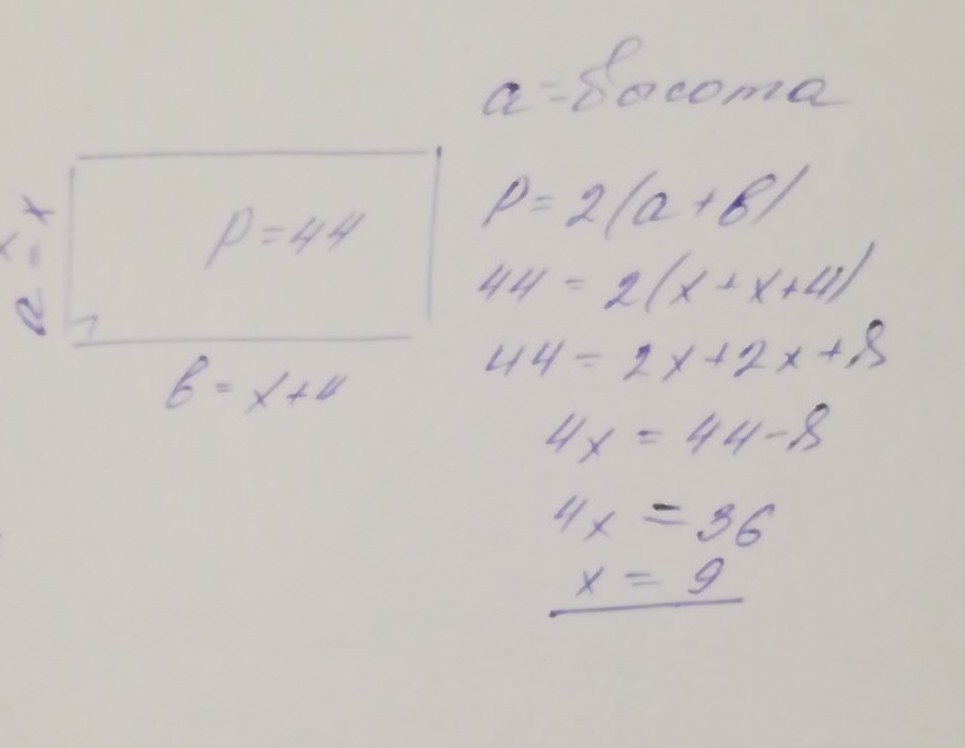 a = высота
a = x
P = 44
в = x+4
P = 2(a + в)
44 = 2(x + x+4)
44 = 2x+2x+8
4x = 44-8
4x = 36
x = 9